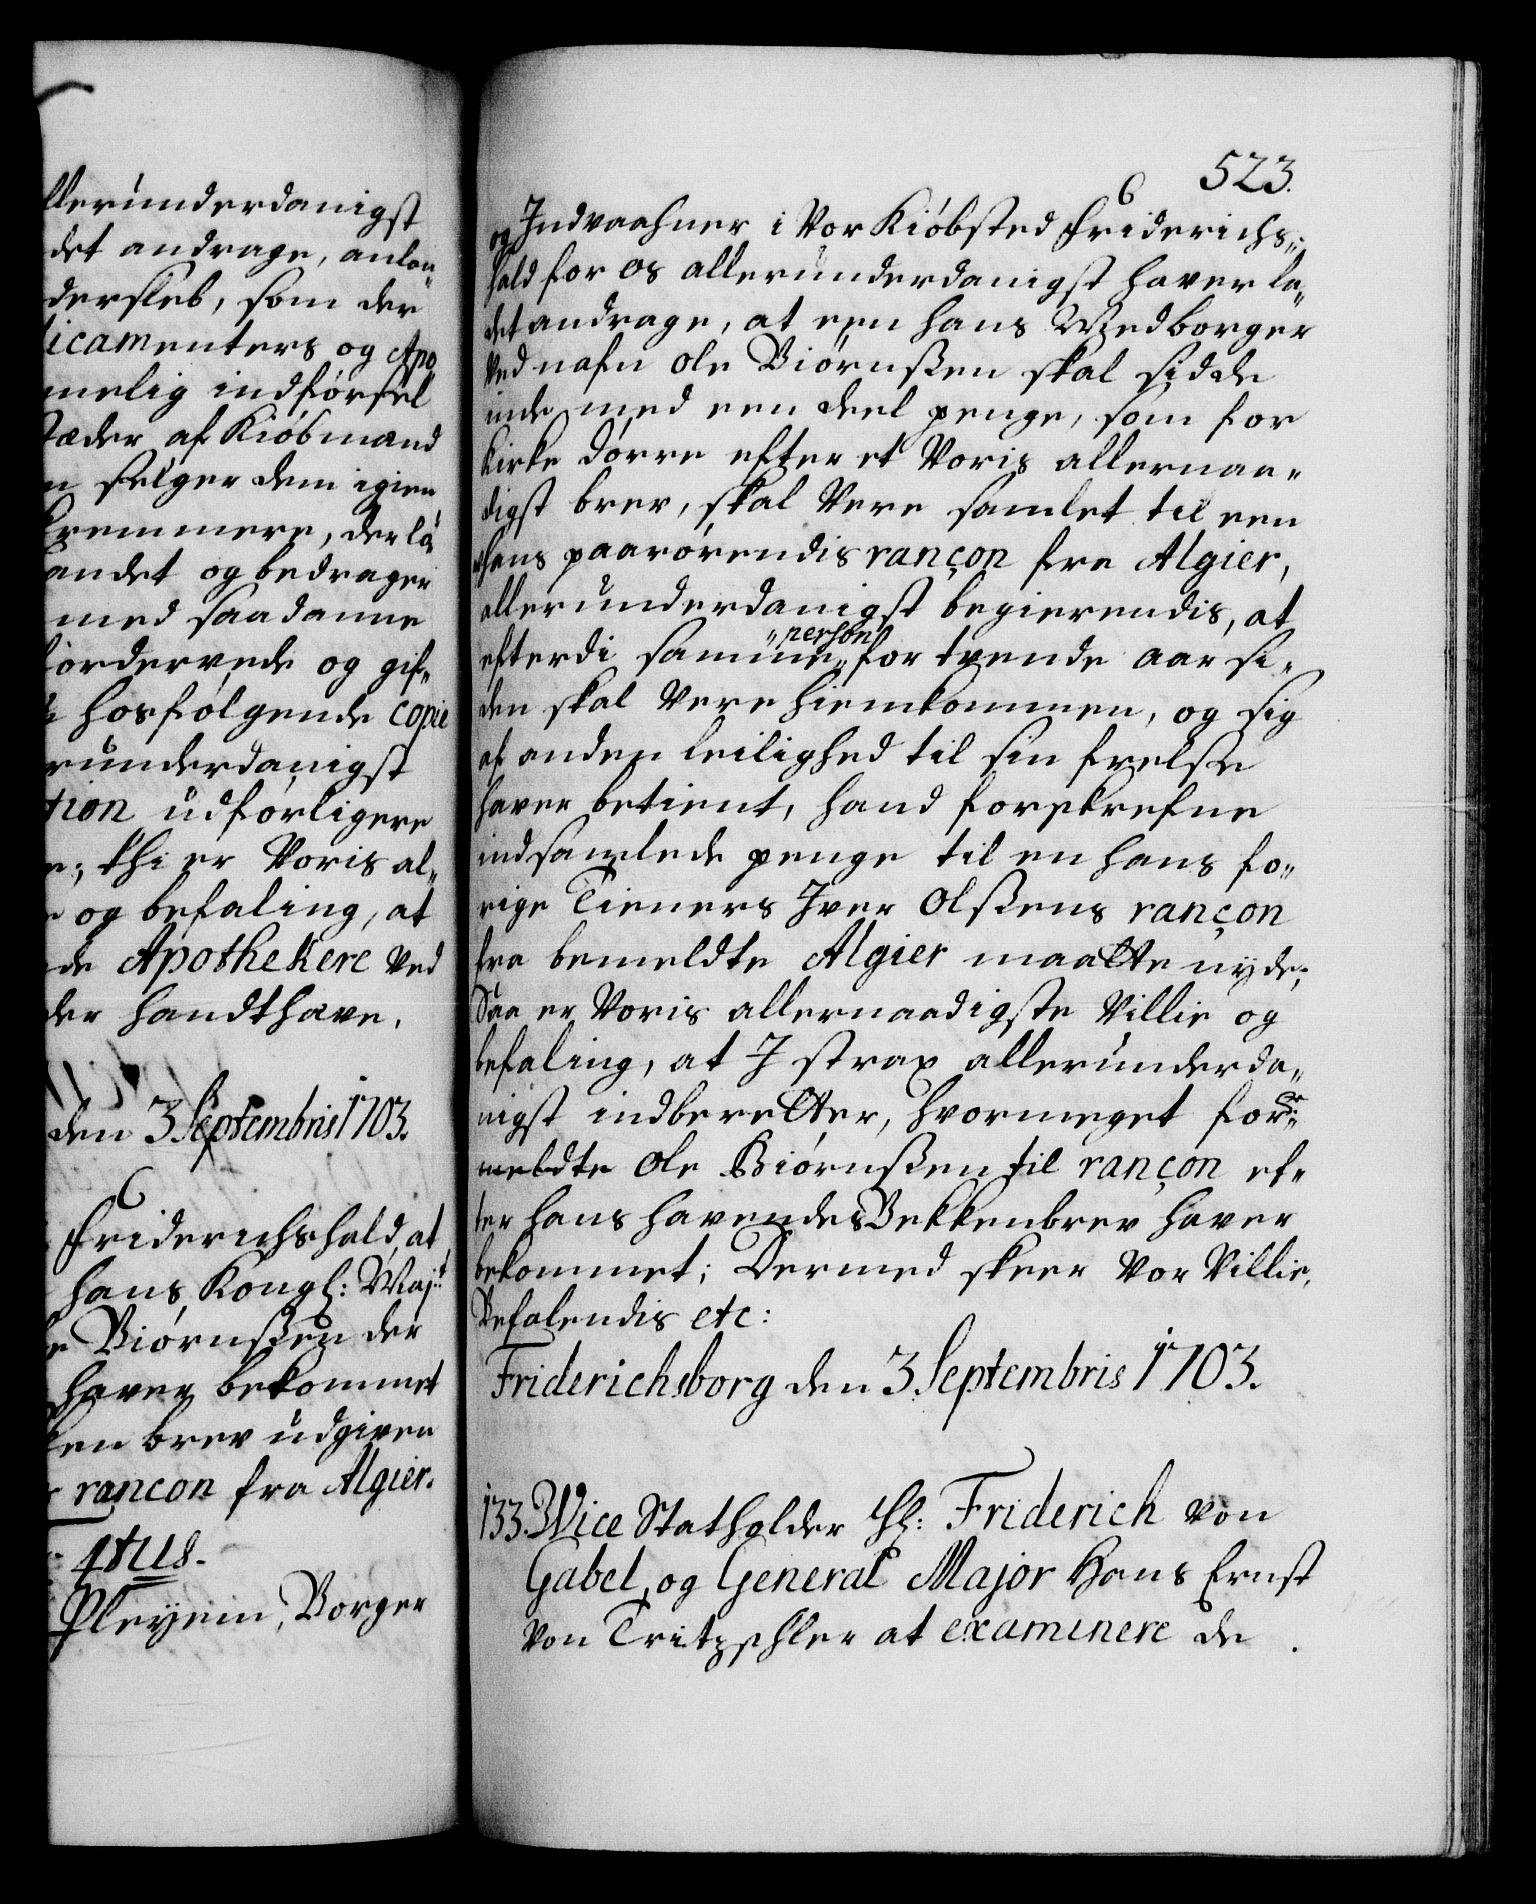 llerunderdanigst
det andrage, anlan„
dersleb, som der
icamenters og Apo
melig indførsel
tæder af Kiøbmænd
n selger dem igien
Kremmere, der lø
andet og bedrager
med saadanne
fordervede og gif„
hosfølgende copie
runderdanigst
tion udførligere
e; thi er Voris al„
e og befaling, at
de Apothekere ved
der handthave.
den 3 Septembris 1703.
Friderichshald, at
hans Kongl: Maj:t
e Biørnßen der
haver bekommet
ken brev udgiven
rancon fra Algier.
4tus.
Pleyem, Borger
523.
og Indvaahner i Vor Kiøbsted Friderichs„
hald for os allerunderdanigst haver la„
det andrage, at een hans Medborger
ved nafn Ole Biørnßen skal sidde
inde med een deel penge, som for
Kirke dørre efter et Voris allernaa„
digst brev, skal være samlet til een
hans paarørendis rançon fra Algier,
allerunderdanigst begierendis, at
efterdi samme „person„ for tvende aar si„
den skal være hiemkommen, og sig
af anden leilighed til sin frelse
haver betient, hand forskrefne
indsamlede penge til en hans fo„
rige Tieners Iver Olßens rançon
fra bemeldte Algier maatte nyde;
Saa er Voris allernaadigste Villie og
befaling, at I strax allerunderda„
nigst indberetter, hvormeget for:ne
meldte Ole Biørnßen til rançon ef„
ter hans havendes Bekkenbrev haver
bekommet; Dermed skeer Vor Villie,
Befalendis etc:
Friderichsborg den 3. Septembris 1703.
133. Vice Statholder Hl: Friderich von
Gabel, og General Major Hans Ernst
von Tritzschler at examinere de